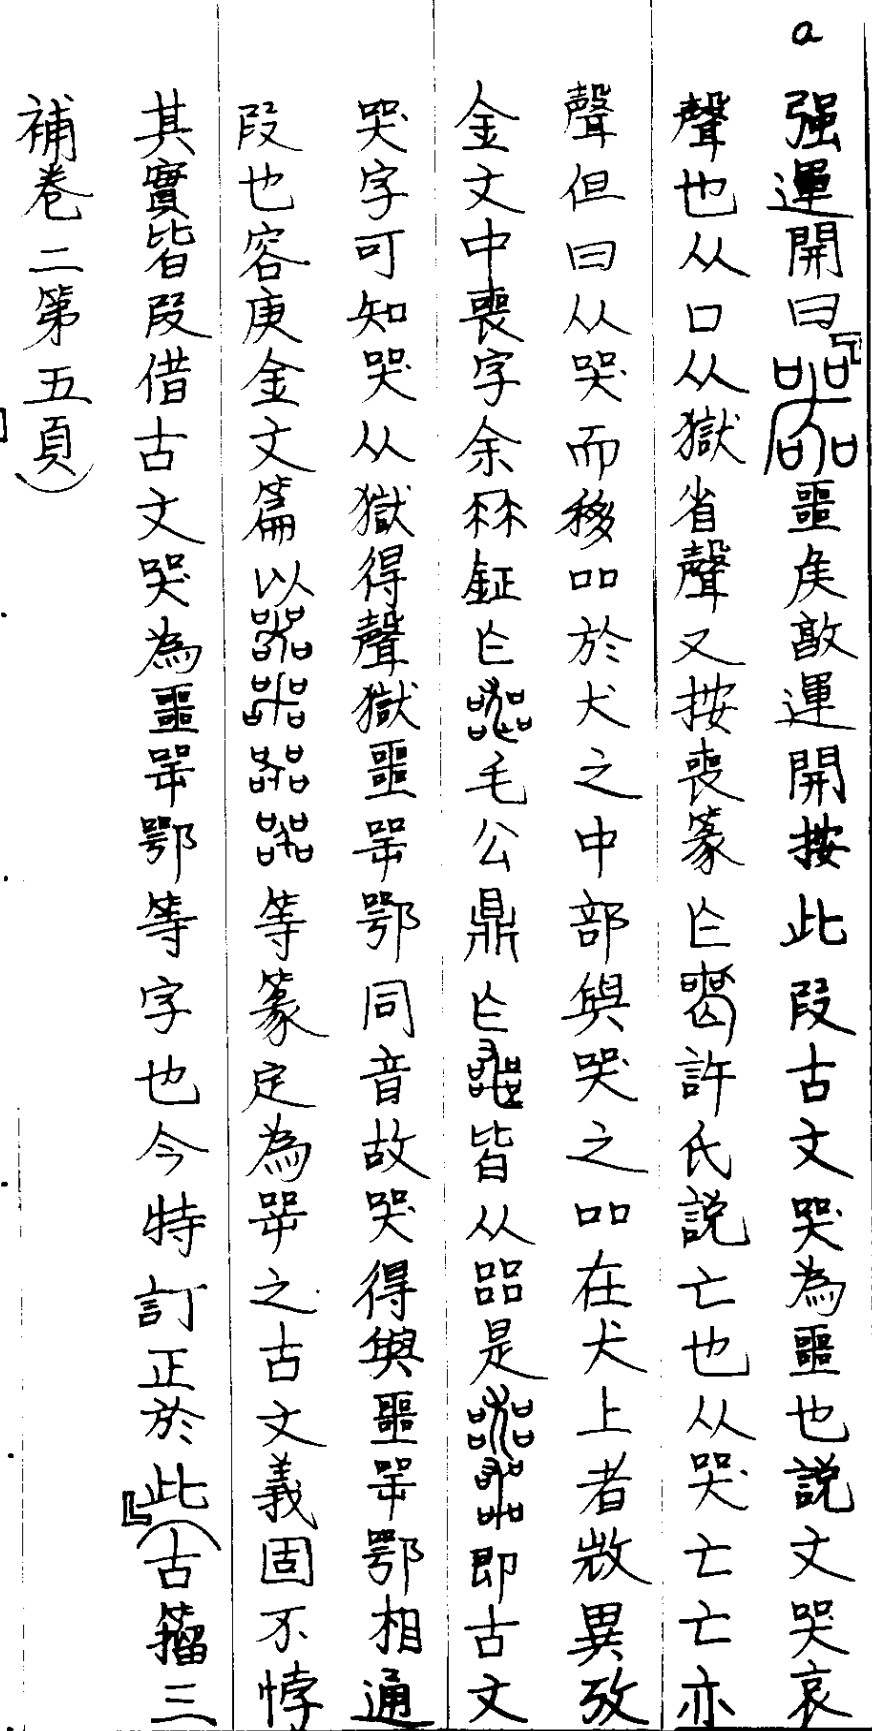 a
强運開曰『噩矦敦運開按此叚古文哭為噩也說文哭哀
聲也从口从獄省聲又按喪篆亾許氏説亡也从哭亡亡亦
聲但曰从哭而移吅於犬之中部與哭之吅在犬上者𢼸異攷
金文中喪字余冉鉦亾毛公鼎亾皆从㗊是即古文
哭字可知哭从獄得聲獄噩咢鄂同音故哭得與噩咢鄂相通
叚也容庚金文篇以等篆定為咢之古文義固不悖
其實皆叚借古文哭為噩咢鄂等字也今特訂正於此』(古籀三
補卷二第五頁)